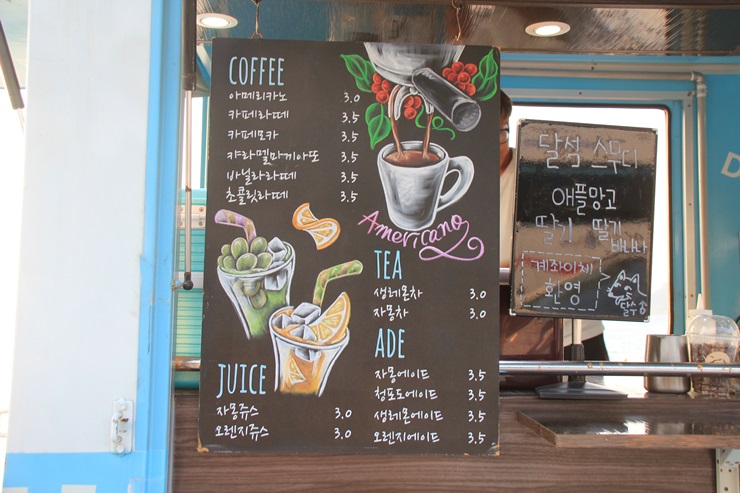 COFFEE
아메리카노 3.0
카페라떼 3.5
카페모카 3.5
캬라멜마끼아또 3.5
바닐라라떼 3.5
초콜릿라떼 3.5
Americano
TEA
생레몬차 3.0
자몽차 3.0
ADE
자몽에이드 3.5
청포도에이드 3.5
생레몬에이드 3.5
오렌지에이드 3.5
JUICE
자몽쥬스 3.0
오렌지쥬스 3.0
달섬 스무디
애플망고
딸기 딸기
바나나
계좌이체
환영